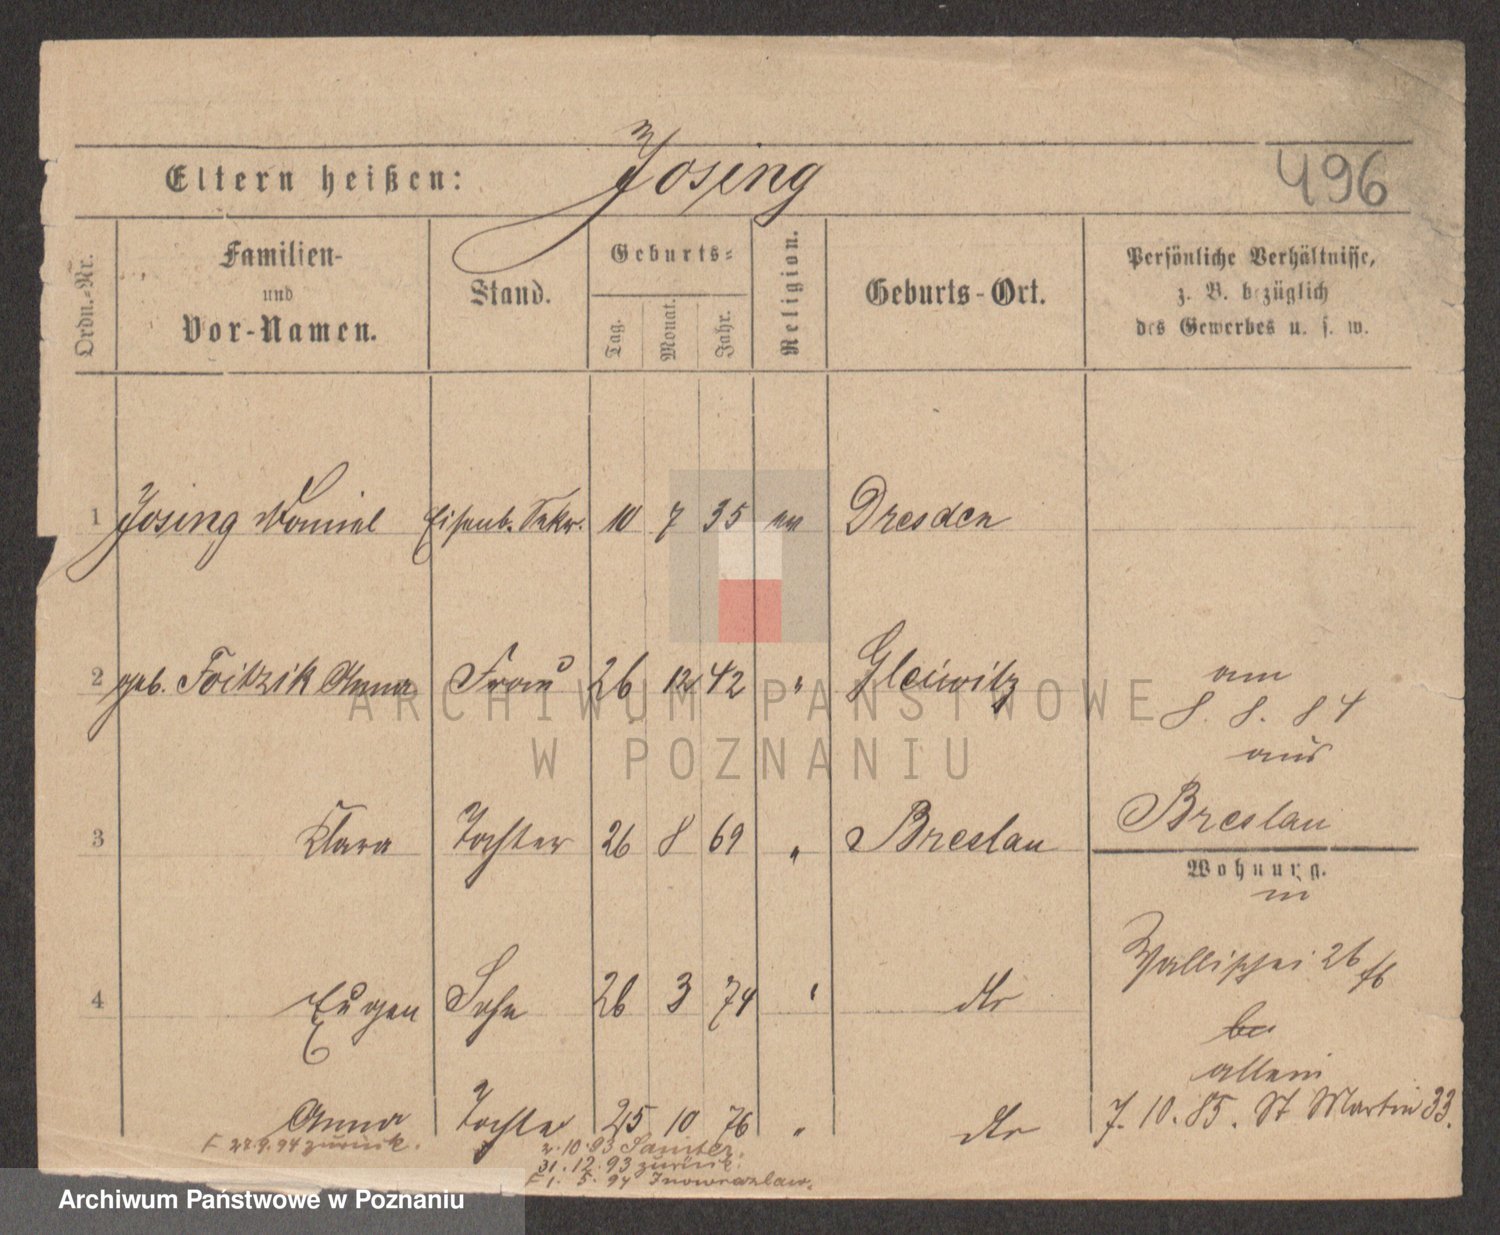 Eltern heißen: Josing 496
Ordn.-Nr. Familien- und Vor-Namen. Stand. Geburts= Tag. Monat. Jahr. Religion. Geburts-Ort. Persönliche Verhältnisse, z. B. bezüglich des Gewerbes u. s. w.
1 Josing Daniel Eisenb. Sekr. 10 7 35 ev Dresden
2 geb. Foitzik Anna Frau 26 12 42 " Gleiwitz
am
8. 8. 84
aus
Breslau
3 Clara Tochter 26 8 69 " Breslau
Wohnung.
in
Wallischei 26
4 Eugen Sohn 26 3 74 " dto
allein
Anna Tochter 25 10 76 " dto
7. 10. 85. St Martin 33.
F 27.9.94 zurück.
2.10.93 Samter.
31.12.93 zurück.
F 1. 5. 94 Inowrazlaw.
ARCHIWUM PAŃSTWOWE
W POZNANIU
Archiwum Państwowe w Poznaniu